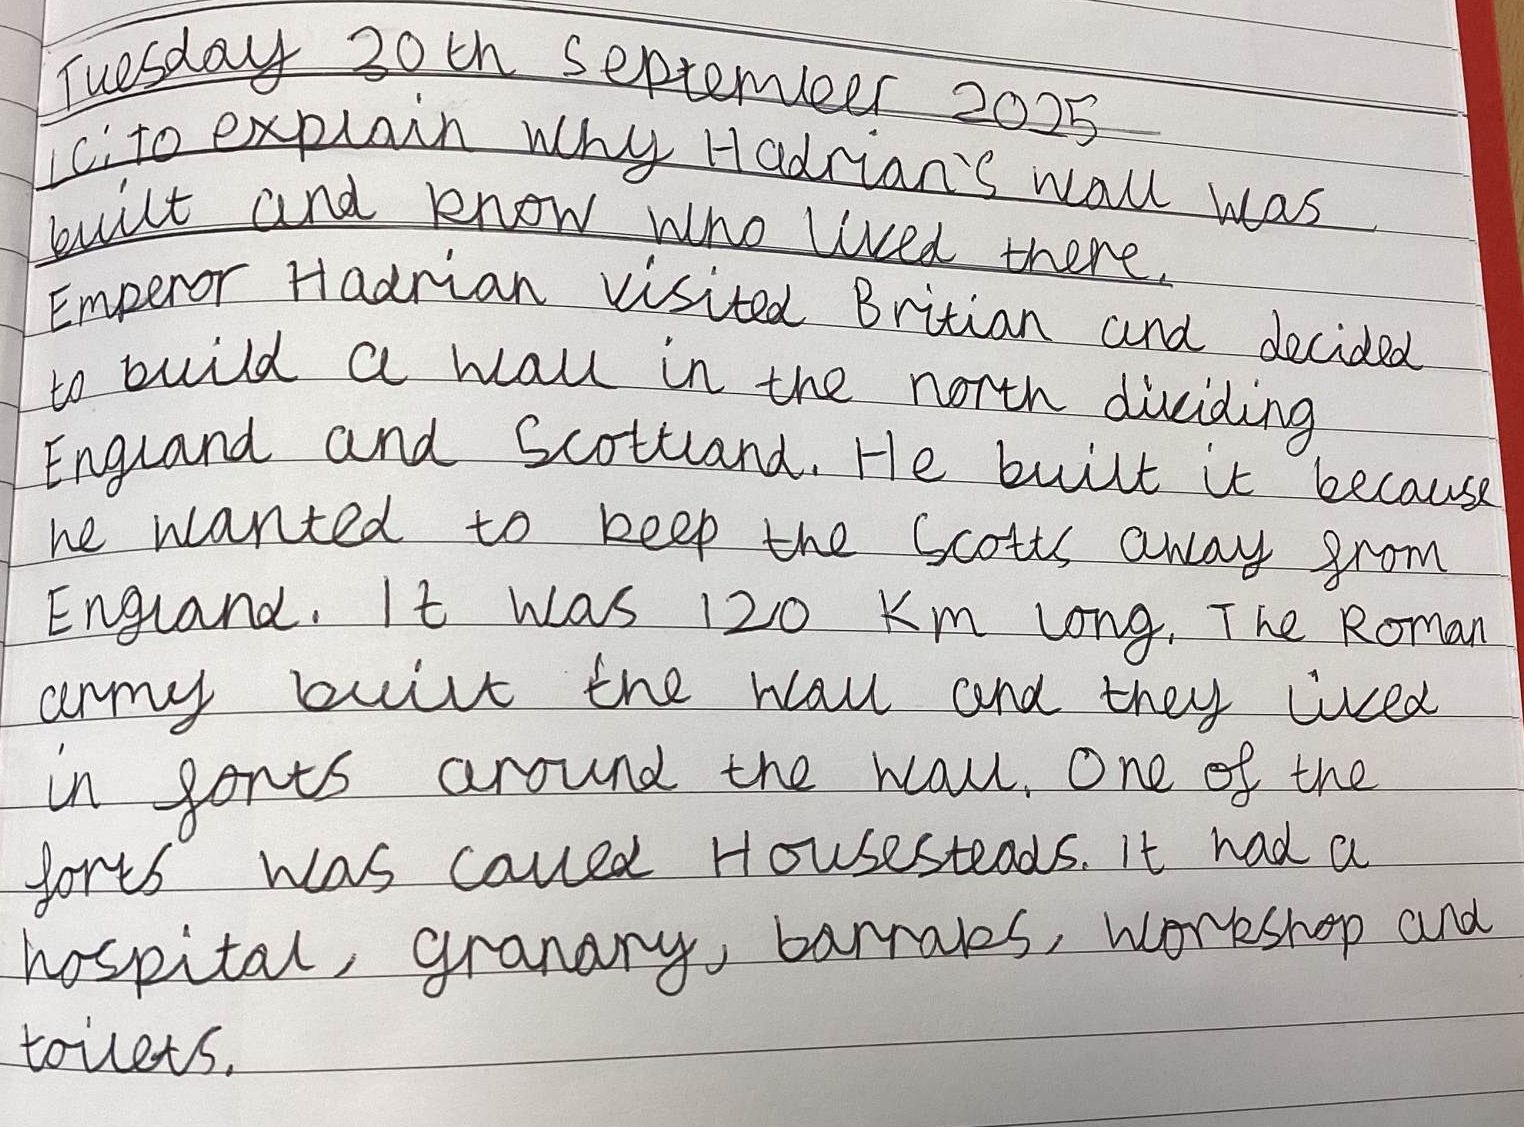 Tuesday 30th September 2025
LC: to explain why Hadrian's wall was
built and know who lived there.
Emperor Hadrian visited Britian and decided
to build a wall in the north dividing
England and Scottland. He built it because
he wanted to keep the Scotts away from
England. It was 120 Km long. The Roman
army built the wall and they lived
in forts around the wall. One of the
forts was called Housesteads. It had a
hospital, granary, barraks, workshop and
toilets.